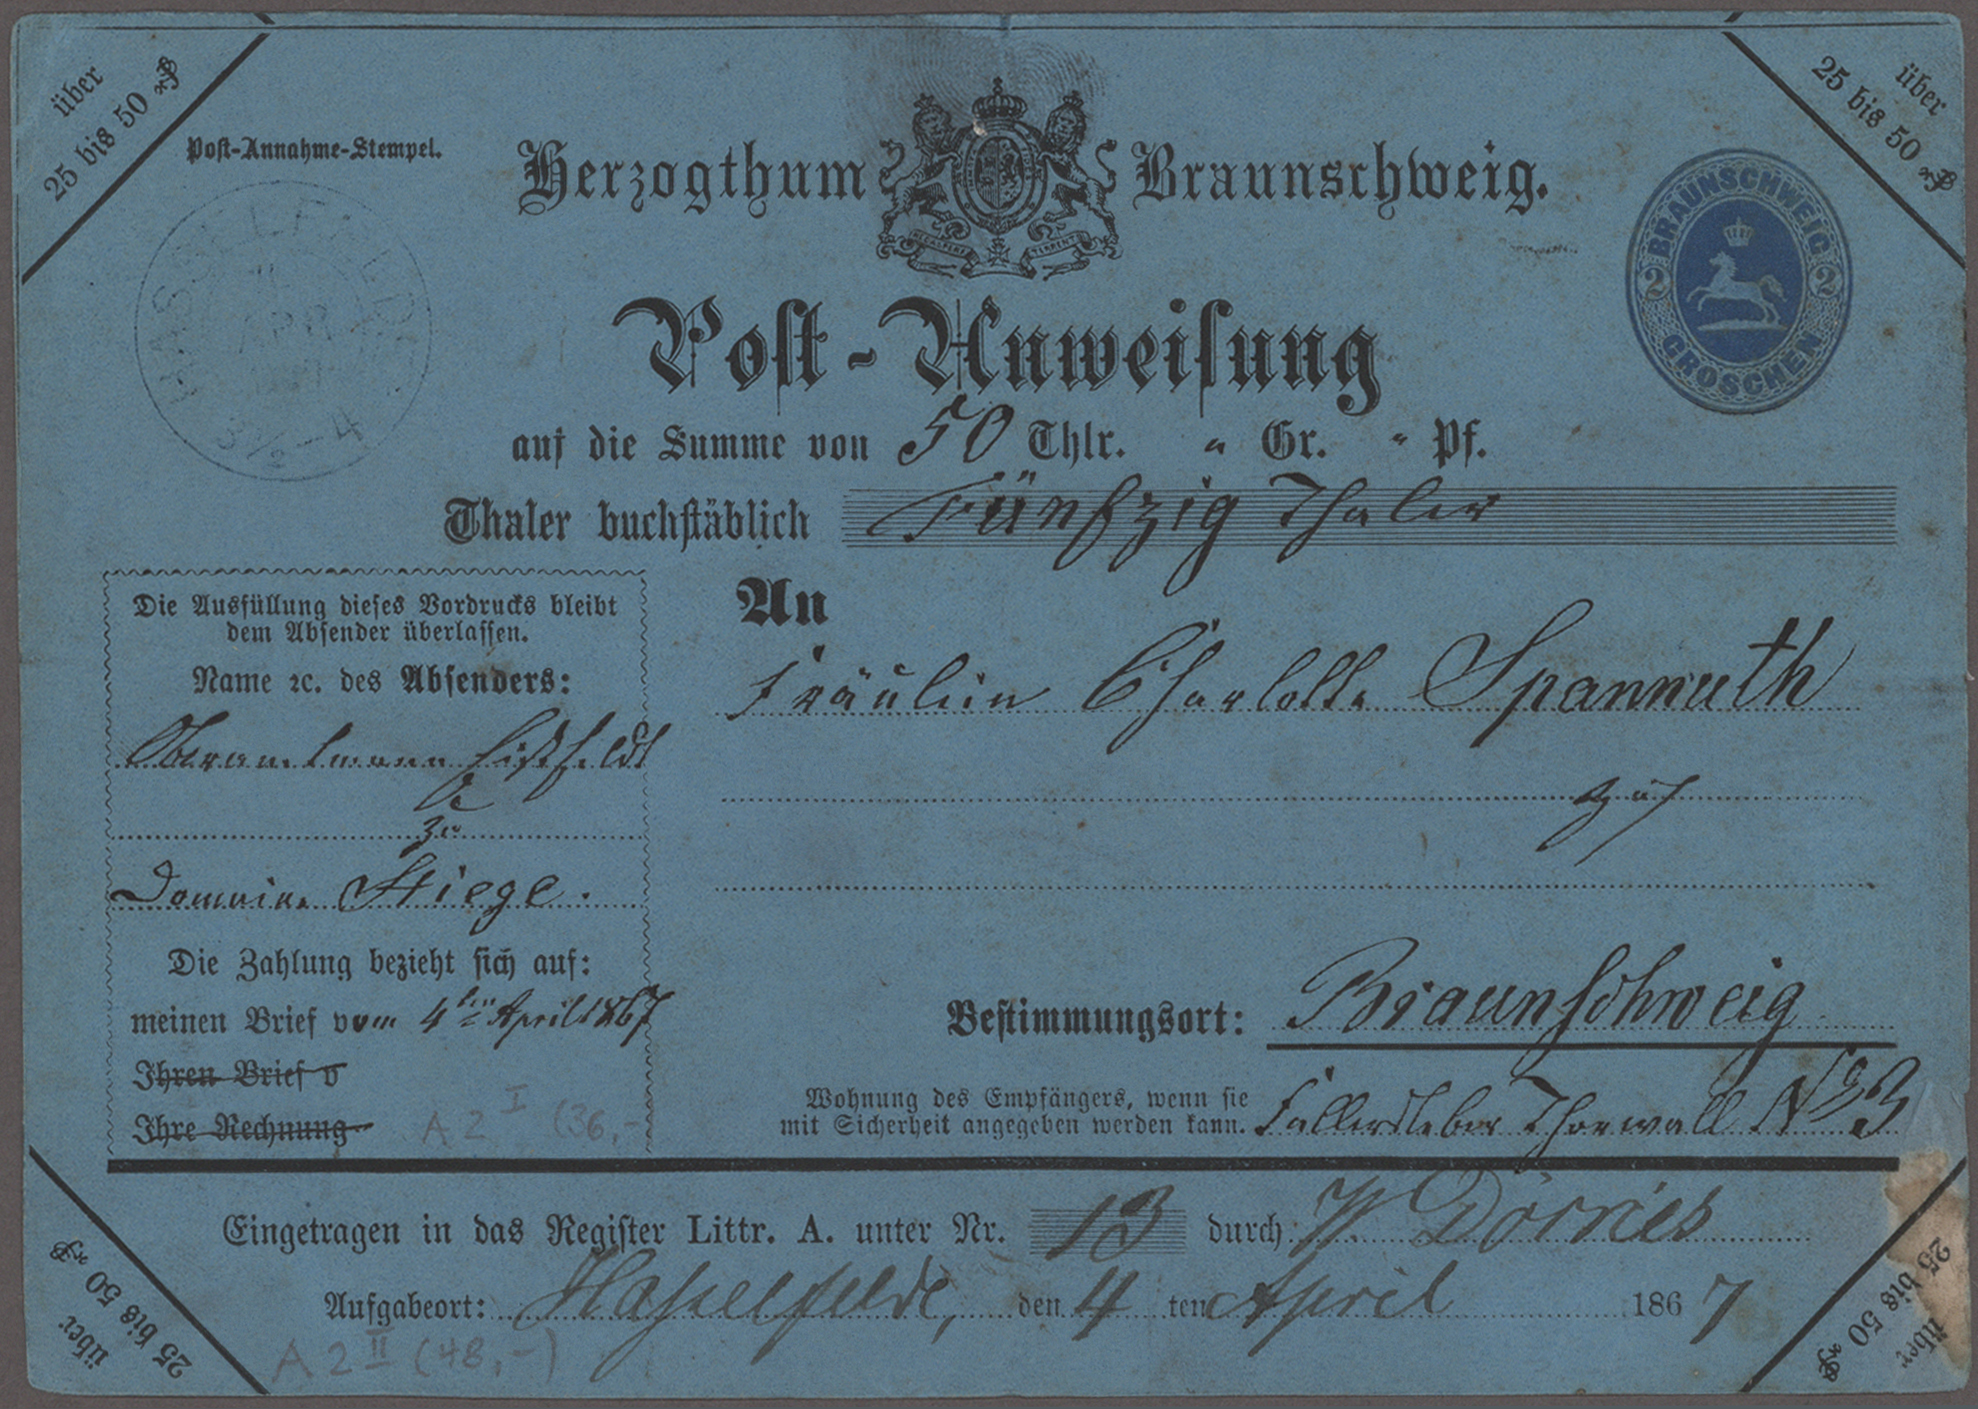 über
25 bis 50 ₰
über
25 bis 50 ₰
Post-Annahme-Stempel.
HASSELFELDE
4
APR
3½-4
Herzogthum Braunschweig.
BRAUNSCHWEIG
2 2
GROSCHEN
Post-Anweisung
auf die Summe von 50 Thlr. " Gr. " Pf.
Thaler buchstäblich Fünfzig Thaler
Die Ausfüllung dieses Vordrucks bleibt
dem Absender überlassen.
Name ꝛc. des Absenders:
Oberamtmann
zu
Domaine Stiege.
Die Zahlung bezieht sich auf:
meinen Brief vom 4ten April 1867
Ihren Brief v
Ihre Rechnung
An
Fräulein Charlotte Spannuth
Bestimmungsort: Braunschweig
Wohnung des Empfängers, wenn sie
mit Sicherheit angegeben werden kann. Fallersleber Thorwall No 3
A 2 I (36,-
Eingetragen in das Register Littr. A. unter Nr. 13 durch W. Dörries
Aufgabeort: Hasselfelde, den 4 ten April 1867
A 2 II (48,-)
über
25 bis 50
über
25 bis 50